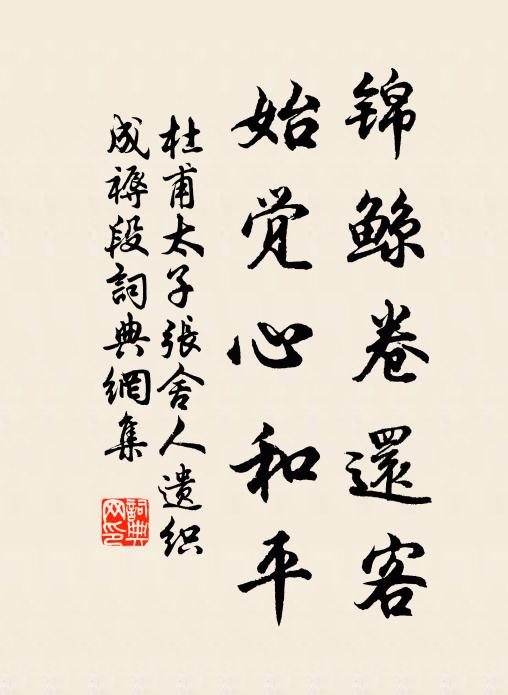 锦鲸卷還客
始觉心和平
杜甫太子張舍人遗织
成褥段詞典網集
詞典网印